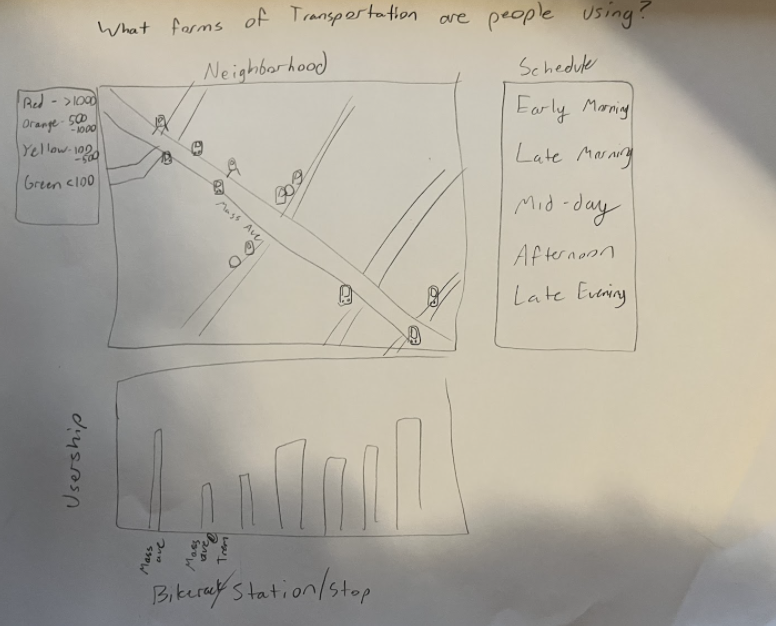 What forms of Transportation are people using?
Neighborhood
Schedule
Red - >1000
Orange - 500
-1000
Yellow - 100
-500
Green <100
Mass Ave
Early Morning
Late Morning
Mid-day
Afternoon
Late Evening
Usership
Mass
ave
Mass
ave
Train
Bikerack/Station/Stop